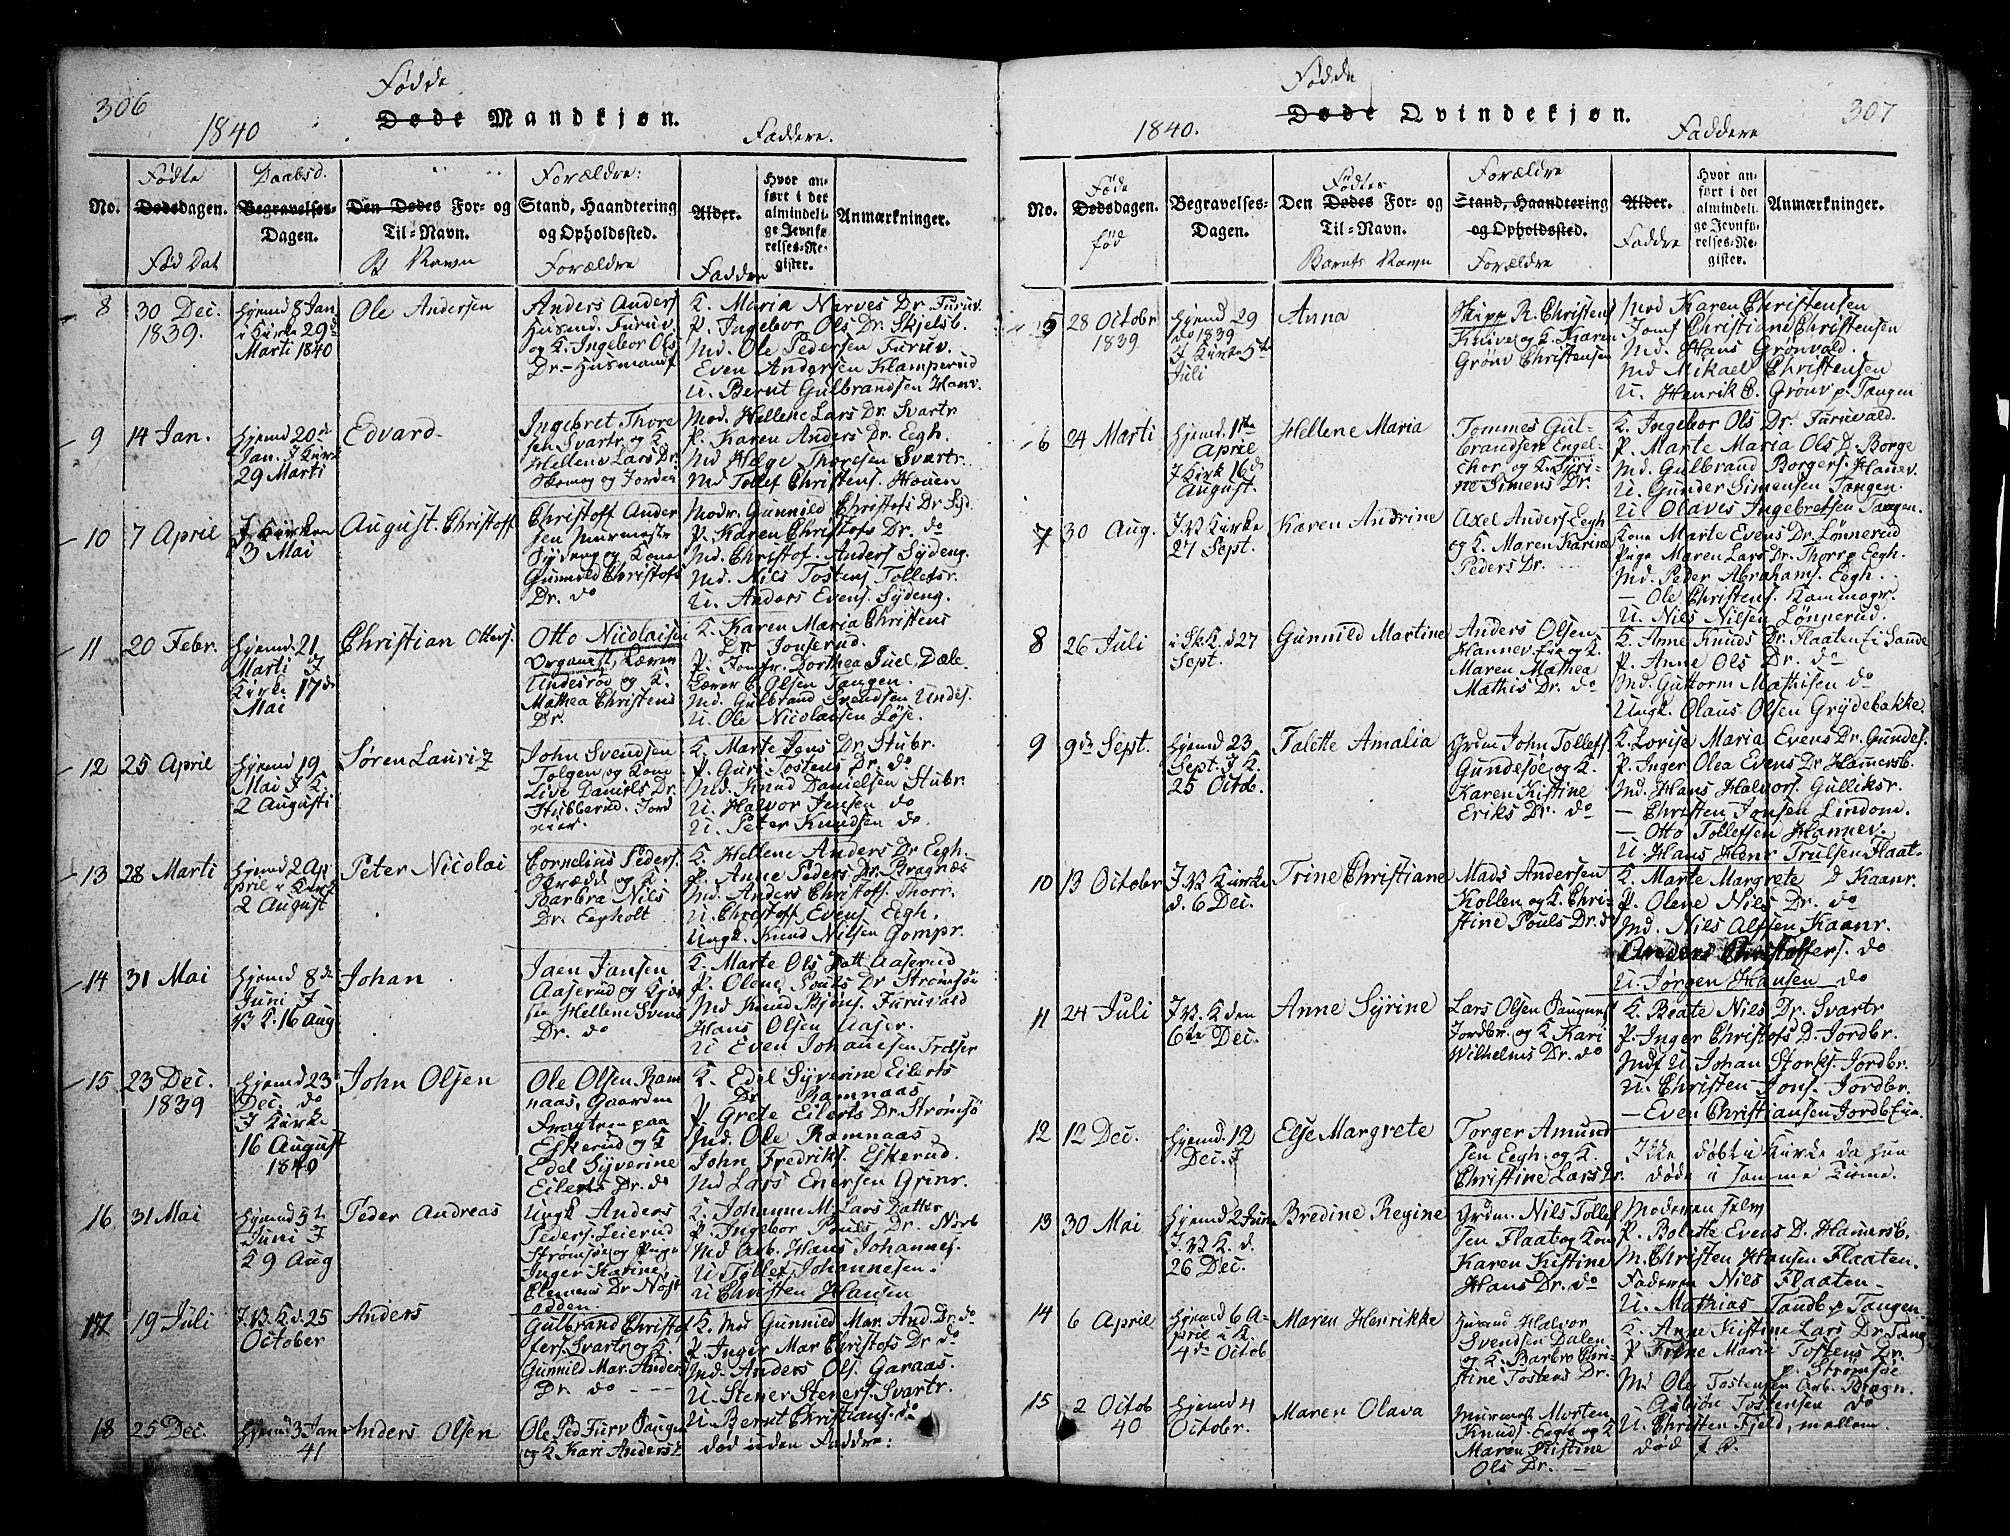 306
Fødde
1840
Døde Mandkjøn.
Faddere.
No.
Fødte
Dødsdagen.
Fød Dat
Daabsd.
Begravelses-
Dagen.
Den Dødes For- og
Til-Navn.
B Navn
Forældre:
Stand, Haandtering
og Opholdssted.
Forældre
Alder.
Faddre
Hvor an-
ført i det
almindeli-
ge Jevnfø-
relses-Re-
gister.
Anmærkninger.
8
30 Dec.
1839.
Hjemd 8 Jan
i Kirke 29de
Marti 1840
Ole Andersen
Anders Anders
Husmd. Furuv.
og K. Ingebor Ols
Dr. - Husmand
K. Maria Narves Dr. Furuv.
P. Ingebor Ols Dr. Skjelsb.
Md. Ole Pedersen Furuv.
Even Andersen Klamperud
U. Bernt Gulbrandsen Hanv.
9
14 Jan.
Hjemd 20de
Jan. I Kirk
29 Marti
Edvard
Ingebret Thore
sen Svartr og K.
Hellene Lars Dr.
Mod. Hellene Lars Dr. Svartr
P. Karen Anders Dr. Eegh.
Md Helge Thoresen Svartr.
Md Tollef Christens. Houen
10
7 April
I Kirken
3 Mai
August Christoff
Christoff Ander
sen Murmest
Sydeng og Kone
Gunnild Christofs
Dr. do
Modr. Gunnild Christofs Dr Syd
P. Karen Christofs Dr. do
Md. Christof. Anders Sydeng.
Md. Nils Tostens Tollefsr.
U. Anders Evens. Sydeng.
11
20 Febr.
Hjemd. 21
Marti I
Kirke 17de
Mai
Christian Otters.
Otto Nicolaisen
Organist, Lærer
Undesrød og K.
Mathea Christens
Dr.
K. Karen Maria Christens
Dr Jonserud.
P. Jomfr. Dorthea Juel, Dæle
Lærer C Olsen Tangen.
Md. Gulbrand Svendsen Undes.
U. Ole Nicolaisen Løse.
12
25 April
Hjemd 19
Mai I K.
2 Augusti
Søren Lauritz
John Svendsen
Tolgen og Kone
Live Daniels Dr.
Stubberud. Jord
eier.
K. Marte Jens Dr. Stubr.
P. Guri Tostens Dr. do
Md. Knud Danielsen Stubr
U. Halvor Jensen do
U. Peter Knudsen do
13
28 Marti
Hjemd 2 Ap
pril i Kirk
2 August
Peter Nicolai
Cornelius Peders.
Brædd og K.
Barbra Nils
Dr. Eegholt
K. Hellene Anders Dr Eegh.
P. Anne Peders Dr. Bragnæs
Md. Anders Christofs. Thorr.
U. Christoff Evens. Eegh.
Ungk. Knud Nilsen Gompr.
14
31 Mai
Hjemd 8de
Juni I
V K. 16 Aug
Johan
Jaen Jansen
Aaserud og Kjær
ste Hellene Svens
Dr. do
K. Marte Ols Datt Aaserud
P. Olene Pouls Dr Strømsøe
Md Knud Bjøns. Furuvald
Hans Olsen Aaser.
U Even Johanesen Trolser
15
23 Dec.
1839
Hjemd 23
Dec. do
I Kirke
16 August
1840
John Olsen
Ole Olsen Ram
naas, Gaardm
Eskerud og K
Edel Syverine
Eilerts Dr. do
K. Edel Syverine Eilerts
Dr Ramnaas
P. Grete Eilerts Dr. Strømsø
Md. Ole Ramnaas
John Fredriks. Eskerud.
Md Lars Enersen Grinr.
16
31 Mai
Hjemd 5t
Juni I
K 9 Aug
Peder Andreas
Ungk Anders
Peders. Leierud
Strømsøe og Pige
Inger Katine
Clemens Dr. Nøst
rødden
K. Johanne M. Lars Datter
P. Ingebor Pouls Dr. Norb
Md Arb. Hans Johannes.
U Tollef Johannesen.
U Christen Hansen
17
19 Juli
I. V. K. d. 25
October
Anders
Gulbrand Christof
fers. Svartr og K
Gunnild Mar. Anders
Dr. do
K. Md Gunnild Mar. And Dr. do
P. Inger Mar Christofs Dr do
Md. Anders Ols. Garaas.
U. Stener Steners. Svartr.
U. Bernt Christians. do
18
25 Dec.
Hjemd 3 Jan
41
Anders Olsen
Ole Ped Furv Saugm
og K. Kari Anders D
død uden Faddre:
307
Fødde
1840.
Døde Qvindekjøn.
Faddere
No.
Føde
Dødsdagen.
fød
Begravelses-
Dagen.
Fødtes
Den Dødes For- og
Til-Navn.
Barnts Navn
Forældre
Stand, Haandtering
og Opholdssted.
Forældre
Alder.
Faddre
Hvor an-
ført i det
almindeli-
ge Jevnfø-
relses-Re-
gister.
Anmærkninger.
5
28 Octobr
1839
Hjemd 29
do 1839
I Kirke 5te
Juli
Anna
Skipp R. Christens
Knive og K. Karen
Grønv Christensen
Mod Karen Christensen
Jomf Christiane Christensen
Md. Hans Grønvold.
Md Mikael Christensen
U. Henrik C. Grønv p Tangen
6
24 Marti
Hjemd. 1ste
April
I Kirk 16de
August.
Hellene Maria
Tommes Gul-
brandsen Engel-
chor og K. Syri-
ne Simens Dr.
K. Ingebor Ols Dr. Furuvald.
P. Marte Maria Ols D. Borge
Md. Gulbrand Borgers. Hanev.
U. Gunder Simensen Tangen.
U Olaves Ingebretsen Tangen.
7
30 Aug.
I V Kirke
27 Sept.
Karen Andrine
Axel Anders Eegh
og K. Maren Karine
Peders Dr.
Kone Marte Evens Dr. Lønnerud
Pige Maren Lars Dr. Thorr p Eegh.
Md. Peder Abrahams. Eegh.
- Ole Christens. Kammegr.
U. Nils Nilsen Lønnerud.
8
26 Juli
i Sk. K. d 27
Sept.
Gunnild Martine
Anders Olsen
Hannev Eie og K
Maren Mathea
Mathis Dr. do
K. Anne Knuds Dr. Flaaten i Sande
P. Anne Ols Dr. do
Md. Guttorm Mathisen do
Ungk. Olaus Olsen Grydebakke.
9
9de Sept.
Hjemd 23
Sept. I K.
25 Octob.
Talette Amalia
Grdm John Tollefs
Gundesøe og K.
Karen Kistine
Eriks Dr. do
K. Lovise Maria Evens Dr. Gundes.
P. Inger Olea Evens Dr Hamersb.
Md. Hans Halvors. Gulliksr.
- Christen Jonsen Lindom.
- Otto Tollefsen Hannev.
U. Hans Henr Trulsen Flaat.
10
13 October
I. V Kirke
d. 6 Dec.
Trine Christiane
Mads Andersen
Kollen og K. Chri-
stine Pouls Dr. do
K. Marte Margrete d Kaanr.
P. Olene Nils Dr. do
Md. Nils Alfsen Kaanr.
Anders Christoffers. do
U. Jørgen Hansen do
11
24 Juli
I. V. K den
6te Dec.
Anne Syrine
Lars Olsen Saugm
Jordbr. og K Kari
Wilhelms Dr. do
K. Beate Nils Dr. Svartr
P. Inger Christofs D. Jordbr.
Indf U. Johan Storks. Jordbr.
U. Christen Jons. Jordbr.
- Even Christiansen Jordb Eie.
12
12 Dec.
Hjemd. 12
Dec. I
Else Margrete
Torger Amund
sen Eegh og K.
Christine Lars Dr.
Ikke døbt i Kirke da hun
døde i samme Time.
13
30 Mai
Hjemd 2 Juni
I. V. K. d.
26 Dec.
Bredine Regine
Grdm. Nils Tollef
sen Flaat og Kon
Karen Kistine
Hans Dr. do
Moderen selv
P. Bolette Evens D. Hamersb.
M. Christen Hansen Flaaten.
Faderen Nils Flaaten-
U. Mathias Tandb p Tangen.
14
6 April
Hjemd 6 A-
pril i K.
4de Octob
Maren Henrikke
Halvor
Svendsen Dalen
og K. Barbro Chri-
stine Tostens Dr.
K. Anne Kistine Lars Dr. Tang
P Trine Marie Tostens Dr.
Strømsøe
Md Ole Tostensen Arb. Bragn.
Asbjøn Tostensen do
U. Christen Fjeld, mellem.
15
2 Octob
40
Hjemd 4
Octobr.
Maren Olava
Murmest Morten
Knuds. Eegh og K
Maren Kistine
Ols Dr.
død f. D.